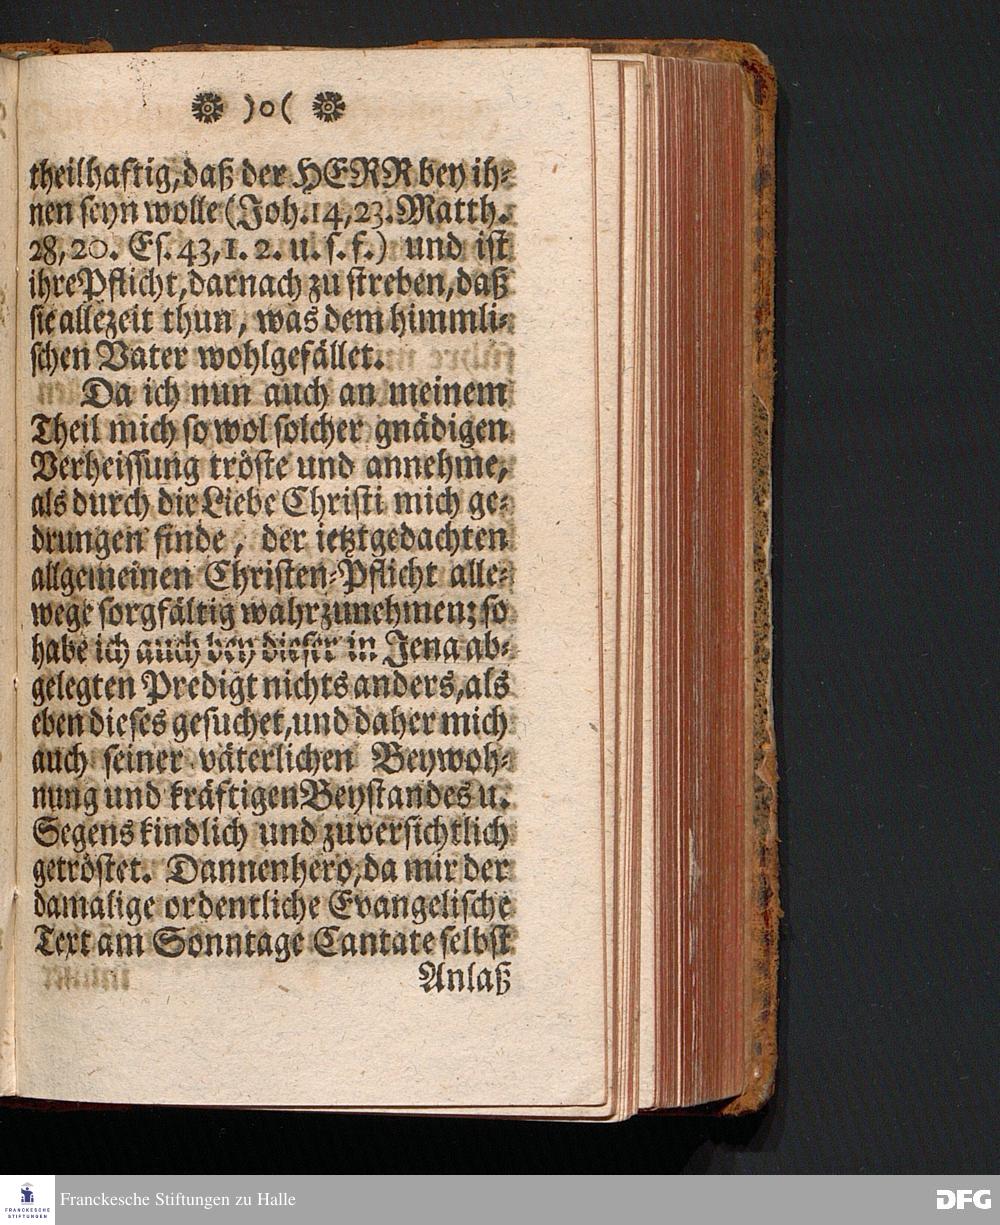 )o(
theilhaftig, daß der HERR bey ih-
nen seyn wolle (Joh. 14, 23. Matth.
28, 20. Es. 43, 1. 2. u. s. f.) und ist
ihre Pflicht, darnach zu streben, daß
sie allezeit thun, was dem himmli-
schen Vater wohlgefället.
Da ich nun auch an meinem
Theil mich so wol solcher gnädigen
Verheissung tröste und annehme,
als durch die Liebe Christi mich ge-
drungen finde, der ietztgedachten
allgemeinen Christen-Pflicht alle-
wege sorgfältig wahrzunehmen; so
habe ich auch bey dieser in Jena ab-
gelegten Predigt nichts anders, als
eben dieses gesuchet, und daher mich
auch seiner väterlichen Beywoh-
nung und kräftigen Beystandes u.
Segens kindlich und zuversichtlich
getröstet. Dannenhero, da mir der
damalige ordentliche Evangelische
Text am Sonntage Cantate selbst
Anlaß
FRANCKESCHE
STIFTUNGEN
Franckesche Stiftungen zu Halle
DFG